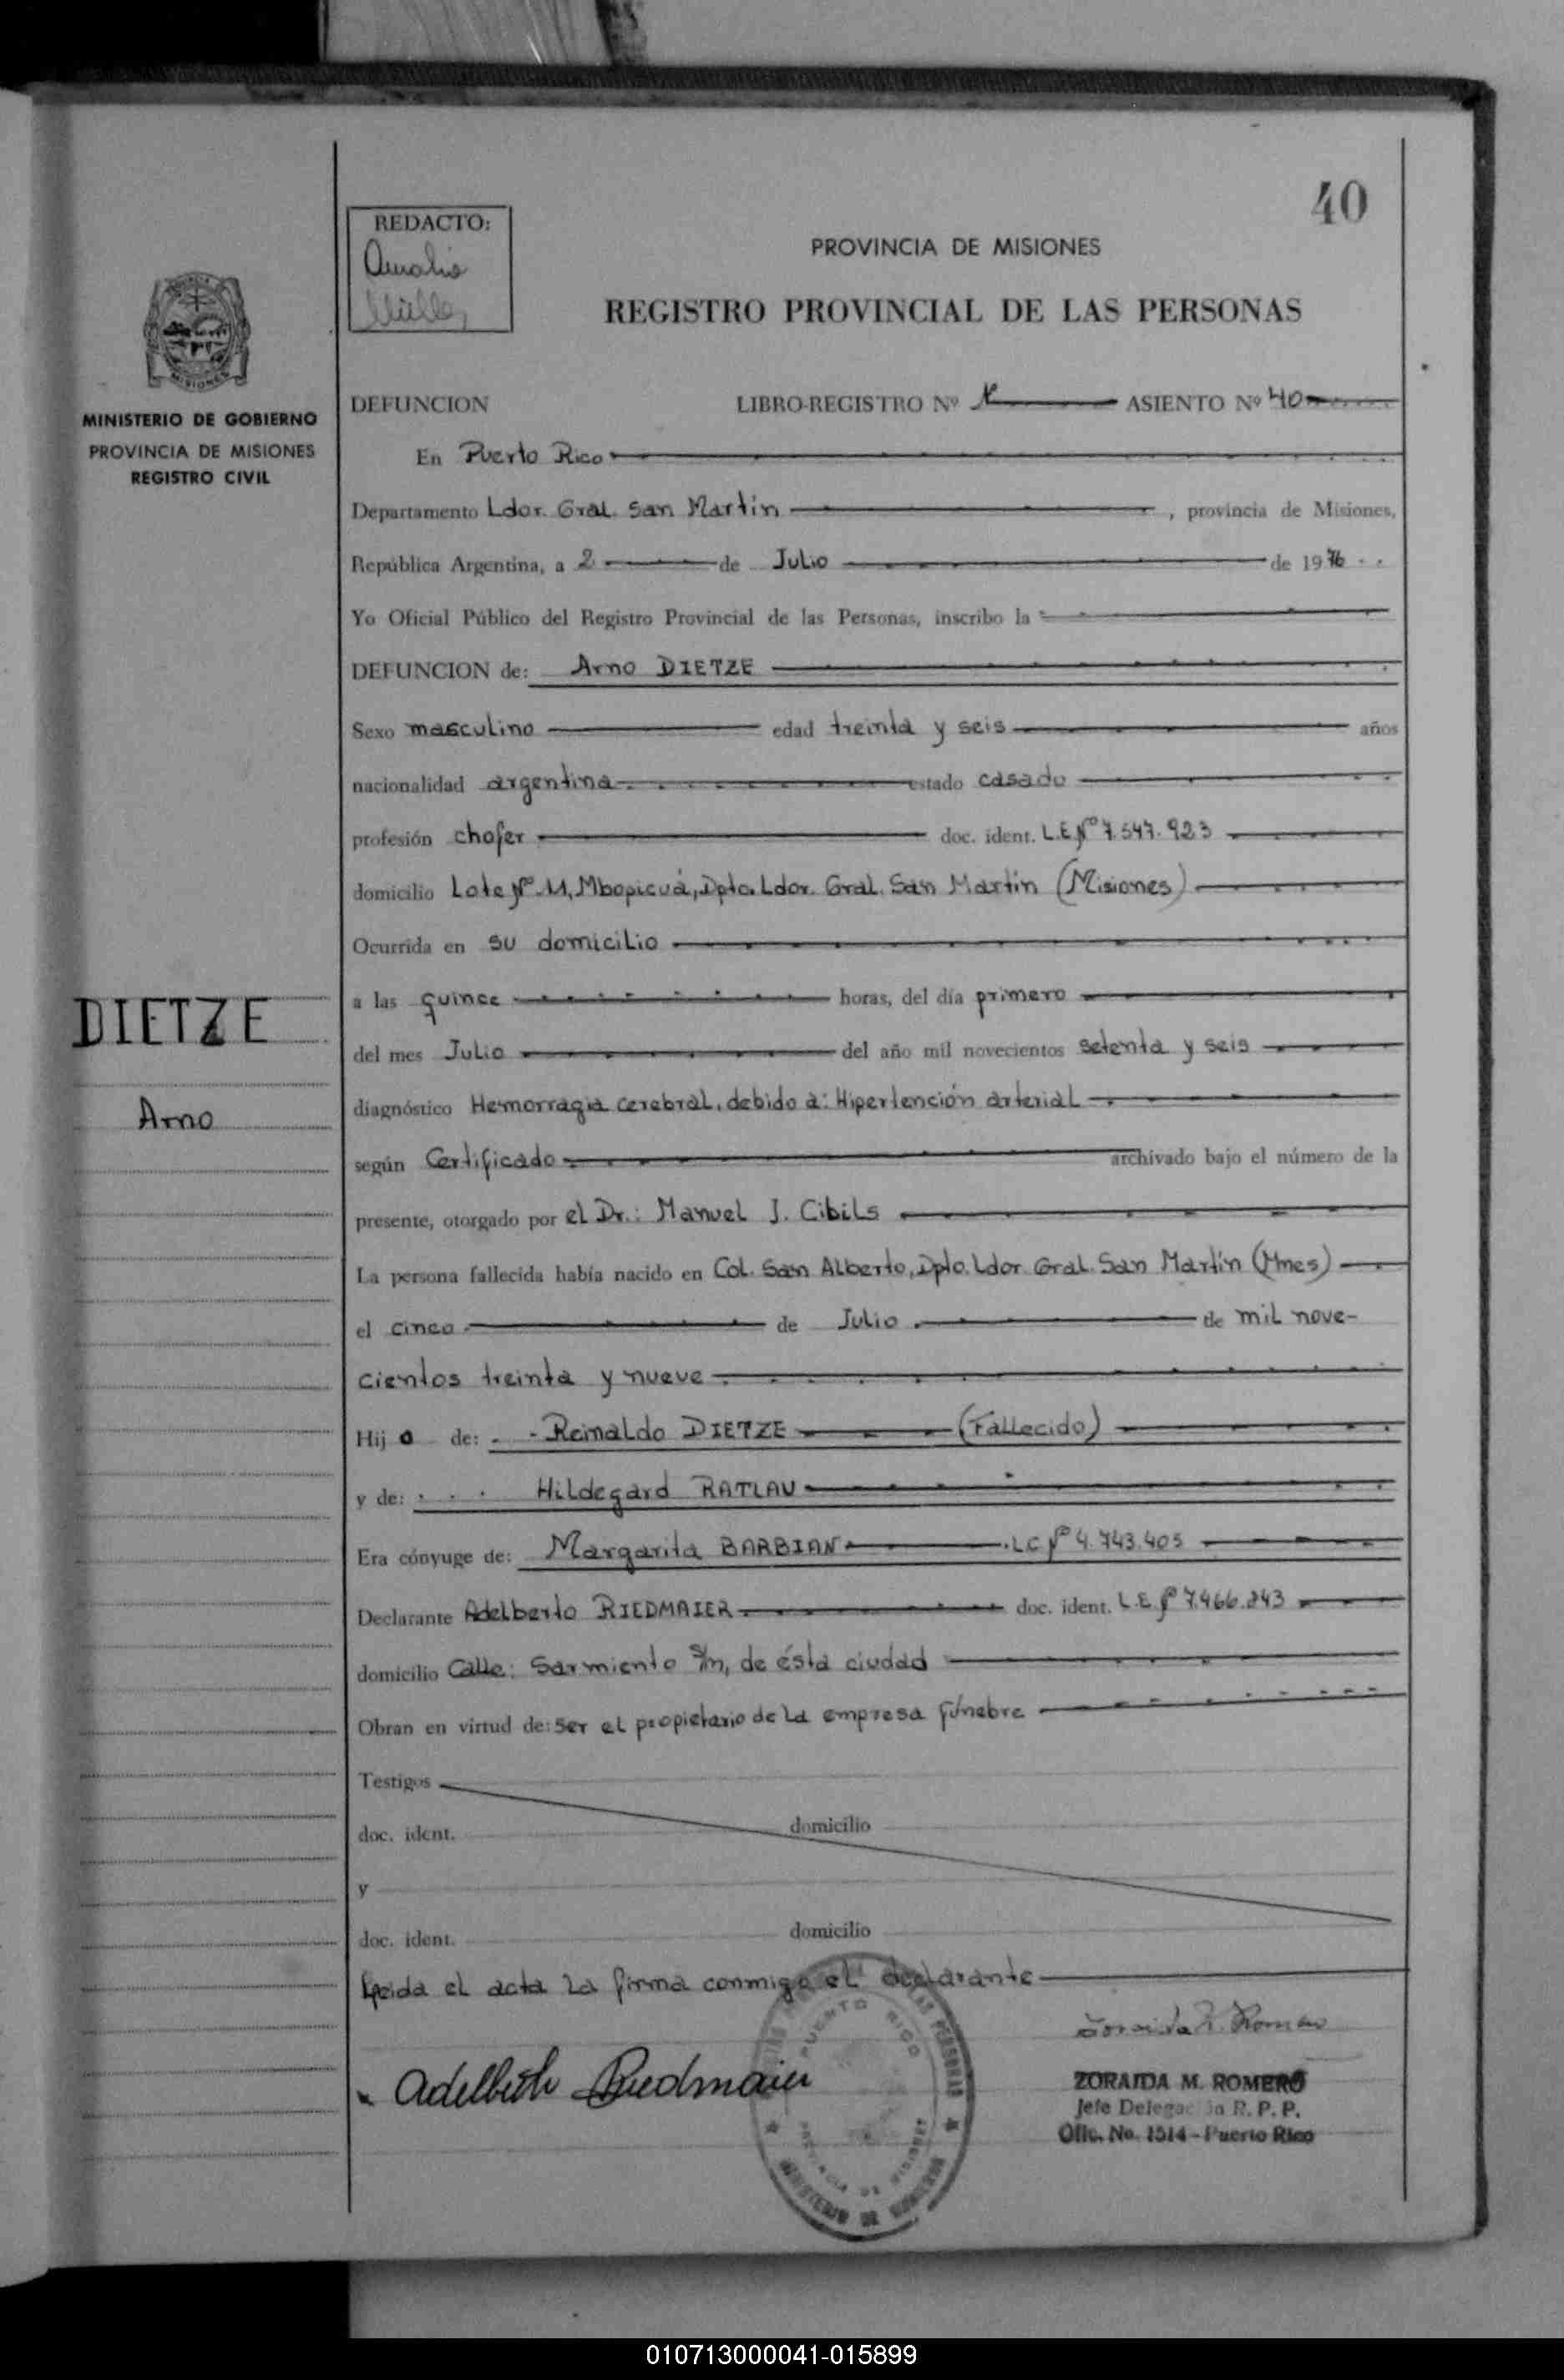 40
REDACTO:
Amalia
Müller
PROVINCIA DE MISIONES
REGISTRO PROVINCIAL DE LAS PERSONAS
MISIONES
MINISTERIO DE GOBIERNO
PROVINCIA DE MISIONES
REGISTRO CIVIL
DIETZE
Arno
DEFUNCION LIBRO-REGISTRO Nº ASIENTO Nº 40
En Puerto Rico
Departamento Ldor. Gral. San Martín , provincia de Misiones,
República Argentina, a 2 de Julio de 1976
Yo Oficial Público del Registro Provincial de las Personas, inscribo la
DEFUNCION de: Arno DIETZE
Sexo masculino edad treinta y seis años
nacionalidad argentina estado casado
profesión chofer doc. ident. L.E.Nº 7.547.923
domicilio Lote Nº 11, Mbopicuá, Dpto. Ldor. Gral. San Martín (Misiones)
Ocurrida en su domicilio
a las quince horas, del día primero
del mes Julio del año mil novecientos setenta y seis
diagnóstico Hemorragia cerebral, debido a: Hipertención arterial
según Certificado archivado bajo el número de la
presente, otorgado por el Dr.: Manuel J. Cibils
La persona fallecida había nacido en Col. San Alberto, Dpto. Ldor Gral. San Martín (Mnes)
el cinco de Julio de mil nove-
cientos treinta y nueve
Hij o de: Reinaldo DIETZE (Fallecido)
y de: Hildegard RATLAU
Era cónyuge de: Margarita BARBIAN LC Nº 4.743.405
Declarante Adelberto RIEDMAIER doc. ident. L.E.Nº 7.466.243
domicilio Calle: Sarmiento s/n, de ésta ciudad
Obran en virtud de: ser el propietario de la empresa fúnebre
Testigos
doc. ident. domicilio
y
doc. ident. domicilio
Leida el acta la firma conmigo el declarante
PUERTO RICO
PROVINCIA DE MISIONES
MINISTERIO DE GOBIERNO
Adelberto Riedmaier
Zoraida M. Romero
ZORAIDA M. ROMERO
Jefe Delegación R. P. P.
Ofic. No. 1514 - Puerto Rico
010713000041-015899